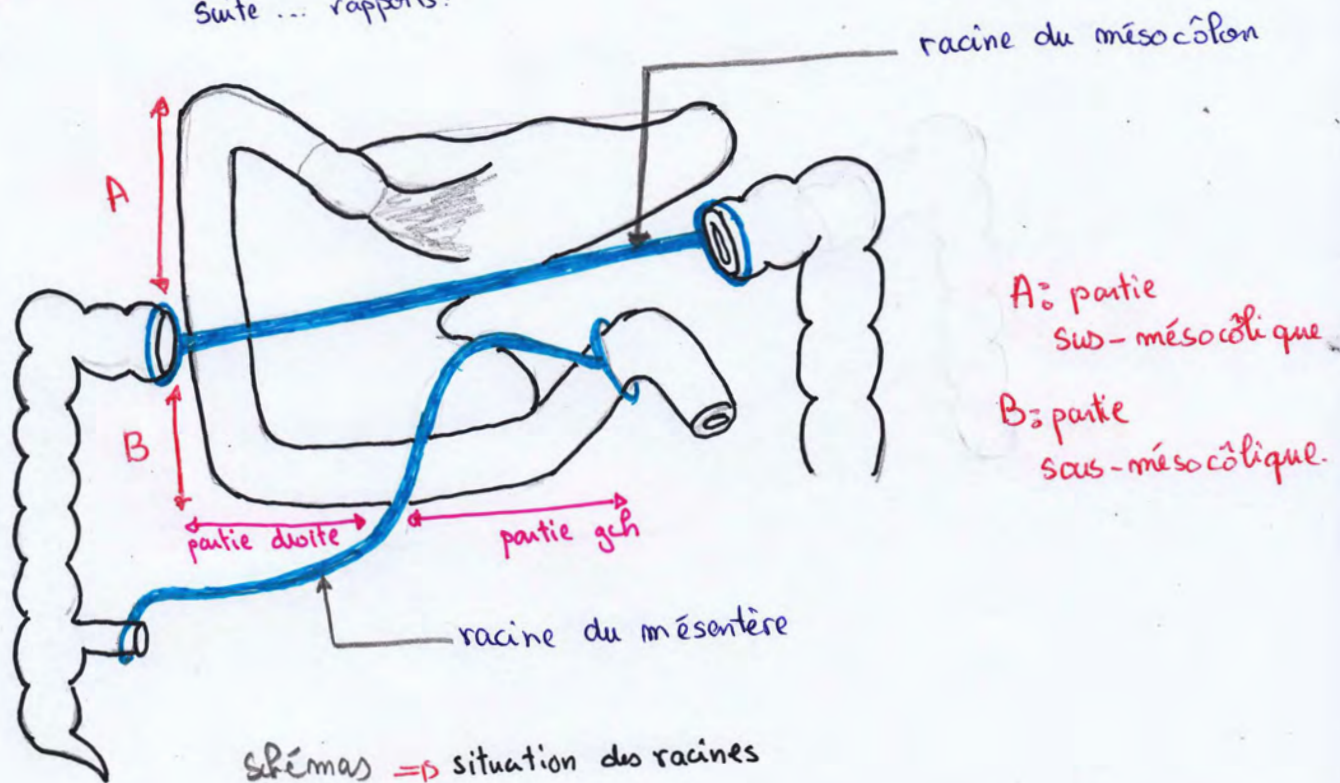 Suite ... rapports.
racine du mésocôlon
A
A: partie
sus-mésocôlique
B
B: partie
sous-mésocôlique.
partie droite
partie gch
racine du mésentère
schémas => situation des racines